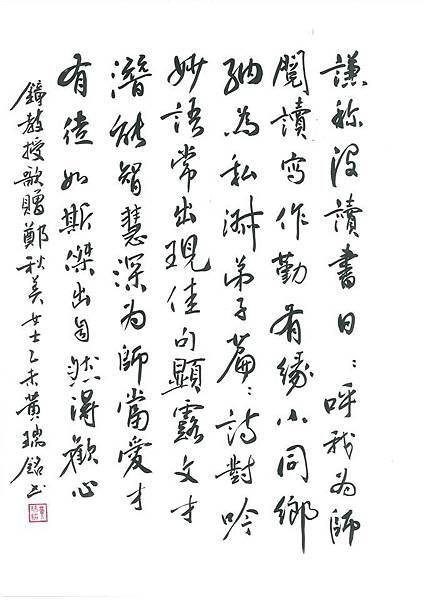 謙称没讀書日〻呼我为師
閱讀寫作勤有緣小同鄉
納為私淑弟子篇〻詩對吟
妙語常出現佳句顯露文才
潛能智慧深为師當愛才
有徒如斯傑出自然得歡心
鐘教授歌贈鄭秋美女士乙未黃瑞銘书